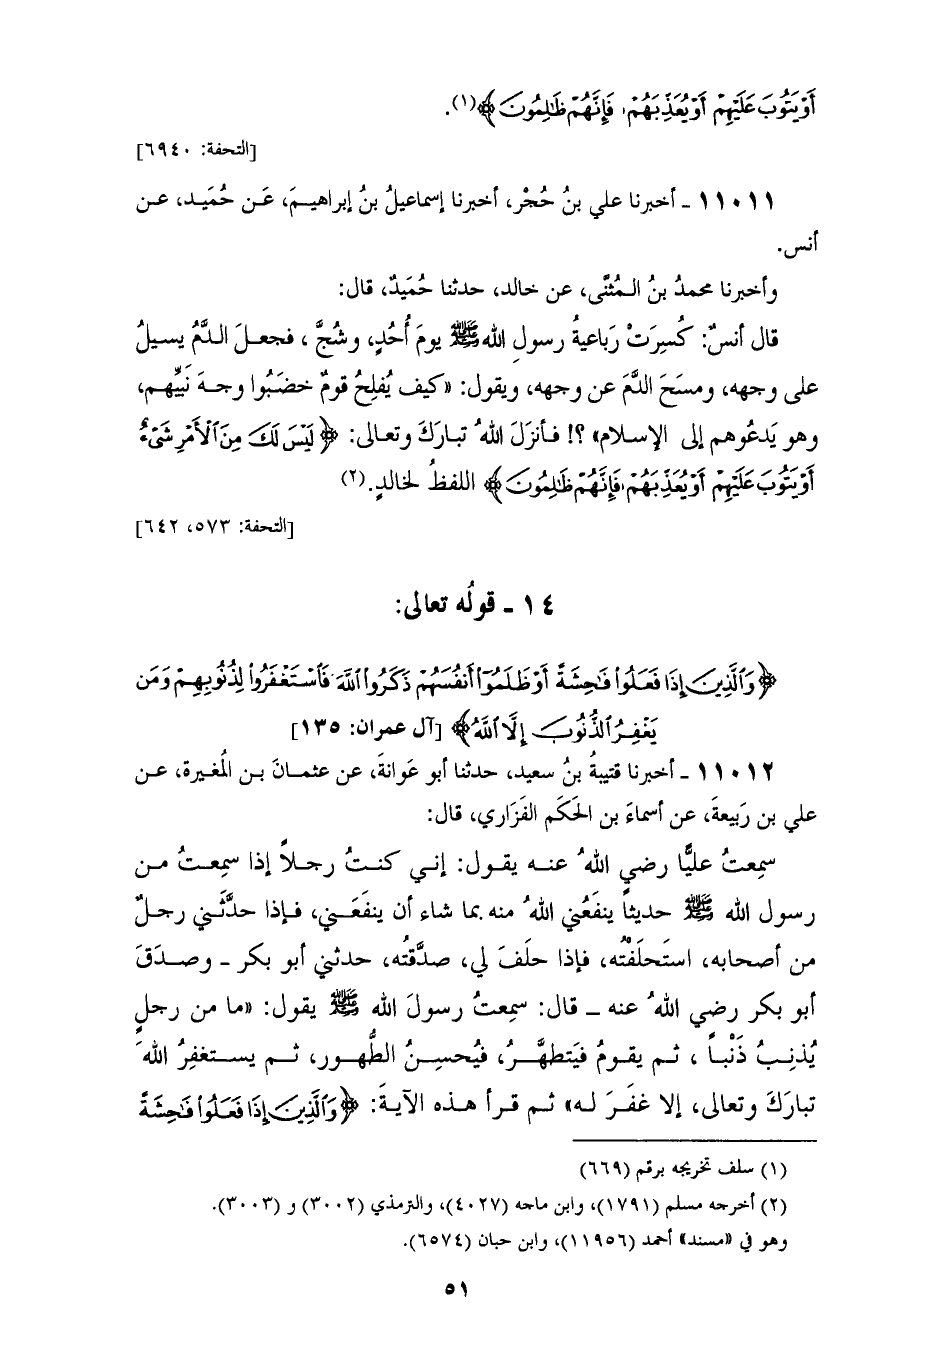 أَوْ يَتُوبَ عَلَيْهِمْ أَوْ يُعَذِّبَهُمْ فَإِنَّهُمْ ظَالِمُونَ﴾(١).
[التحفة: ٦٩٤٠]
١١٠١١ - أخبرنا علي بنُ حُجْر، أخبرنا إسماعيلُ بنُ إبراهيمَ، عَن حُمَيد، عن
أنس.
وأخبرنا محمدُ بنُ المُثنَّى، عن خالد، حدثنا حُمَيدٌ، قال:
قال أنسٌ: كُسِرَتْ رَباعيةُ رسولِ اللهِ ﷺ يومَ أُحُدٍ، وشُجَّ، فجعلَ الدَّمُ يسيلُ
على وجهه، ومسَحَ الدَّمَ عن وجهه، ويقول: «كيف يُفلِحُ قومٌ خضَبُوا وجهَ نَبيِّهم،
وهو يَدعُوهم إلى الإسلام» ؟! فأنزَلَ اللهُ تبارَكَ وتعالى: ﴿لَيْسَ لَكَ مِنَ ٱلْأَمْرِ شَىْءٌ
أَوْ يَتُوبَ عَلَيْهِمْ أَوْ يُعَذِّبَهُمْ فَإِنَّهُمْ ظَالِمُونَ﴾ اللفظُ لخالدٍ.(٢)
[التحفة: ٥٧٣، ٦٤٢]
١٤ - قولُه تعالى:
﴿وَٱلَّذِينَ إِذَا فَعَلُوا۟ فَٰحِشَةً أَوْ ظَلَمُوٓا۟ أَنفُسَهُمْ ذَكَرُوا۟ ٱللَّهَ فَٱسْتَغْفَرُوا۟ لِذُنُوبِهِمْ وَمَن
يَغْفِرُ ٱلذُّنُوبَ إِلَّا ٱللَّهُ﴾ [آل عمران: ١٣٥]
١١٠١٢ - أخبرنا قتيبةُ بنُ سعيد، حدثنا أبو عَوانةَ، عن عثمانَ بن المُغيرة، عن
علي بن رَبيعةَ، عن أسماءَ بن الحَكَم الفَزاري، قال:
سمِعتُ عليًّا رضي اللهُ عنه يقول: إني كنتُ رجلاً إذا سمِعتُ من
رسول الله ﷺ حديثاً ينفَعُني اللهُ منه بما شاء أن ينفَعَني، فإذا حدَّثَني رجلٌ
من أصحابه، استَحلَفْتُه، فإذا حلَفَ لي، صدَّقتُه، حدثني أبو بكر - وصدَقَ
أبو بكر رضي اللهُ عنه - قال: سمِعتُ رسولَ الله ﷺ يقول: «ما من رجلٍ
يُذنِبُ ذَنْباً، ثم يقومُ فيَتطهَّرُ، فيُحسِنُ الطُّهور، ثم يستغفِرُ اللهَ
تبارَكَ وتعالى، إلا غفَرَ له» ثم قرأ هذه الآيةَ: ﴿وَٱلَّذِينَ إِذَا فَعَلُوا۟ فَٰحِشَةً
(١) سلف تخريجه برقم (٦٦٩)
(٢) أخرجه مسلم (١٧٩١)، وابن ماجه (٤٠٢٧)، والترمذي (٣٠٠٢) و (٣٠٠٣).
وهو في «مسند» أحمد (١١٩٥٦)، وابن حبان (٦٥٧٤).
٥١